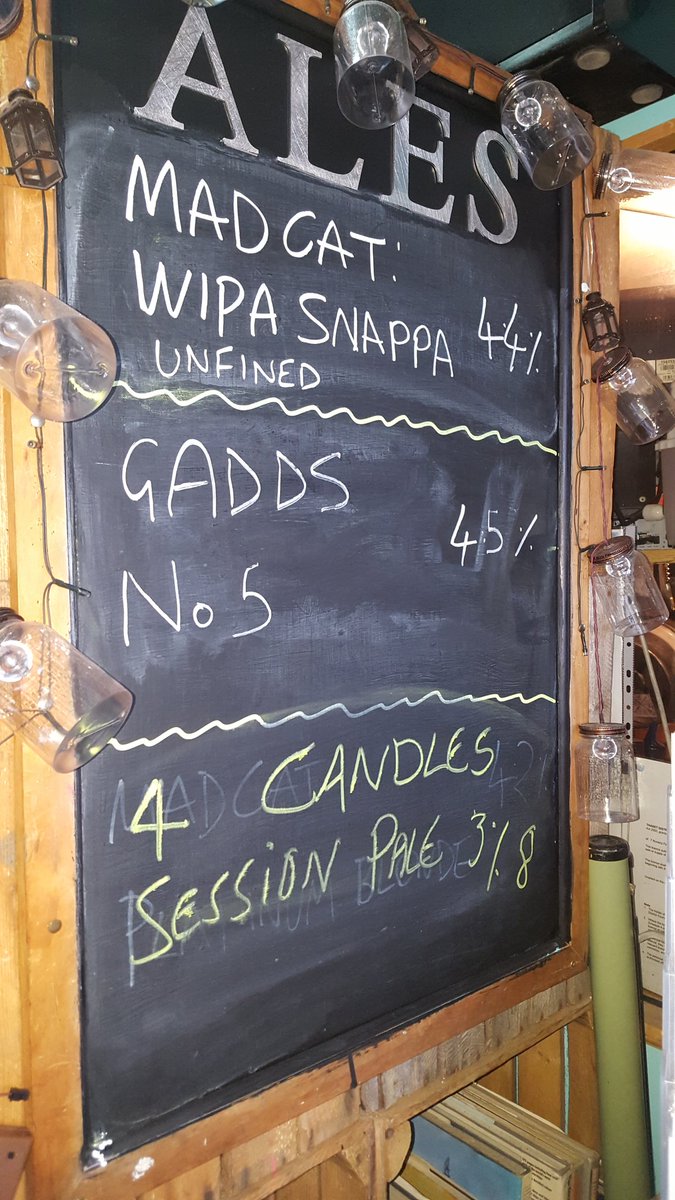 ALES
MAD CAT:
WIPA SNAPPA 4.4%
UNFINED
GADDS
4.5%
No 5
4 CANDLES
MADCAT 42%
SESSION PALE 3% 8
PLATINUM BLONDE